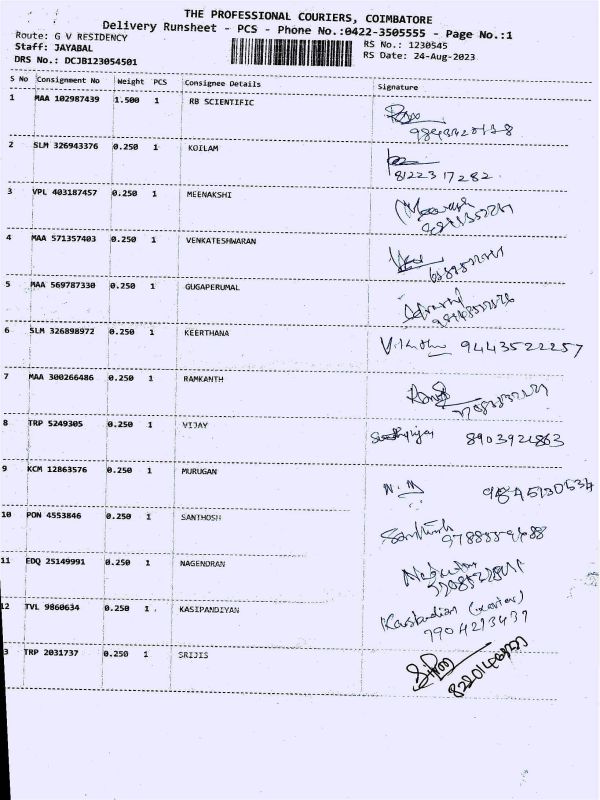 THE PROFESSIONAL COURIERS, COIMBATORE
Delivery Runsheet - PCS - Phone No.:0422-3505555 - Page No.:1
Route: G V RESIDENCY
Staff: JAYABAL
DRS No.: DCJB123054501
RS No.: 1230545
RS Date: 24-Aug-2023
S No Consignment No Weight PCS Consignee Details Signature
1 MAA 102987439 1.500 1 RB SCIENTIFIC
2 SLM 326943376 0.250 1 KOILAM
8122317282
3 VPL 403187457 0.250 1 MEENAKSHI
4 MAA 571357403 0.250 1 VENKATESHWARAN
5 MAA 569787330 0.250 1 GUGAPERUMAL
6 SLM 326898972 0.250 1 KEERTHANA
9443522257
7 MAA 300266486 0.250 1 RAMKANTH
8 TRP 5249305 0.250 1 VIJAY
8903921863
9 KCM 12863576 0.250 1 MURUGAN
N. M
10 PON 4553846 0.250 1 SANTHOSH
Santhosh
11 EDQ 25149991 0.250 1 NAGENDRAN
12 TVL 9860634 0.250 1 KASIPANDIYAN
7904213439
3 TRP 2031737 0.250 1 SRIJIS